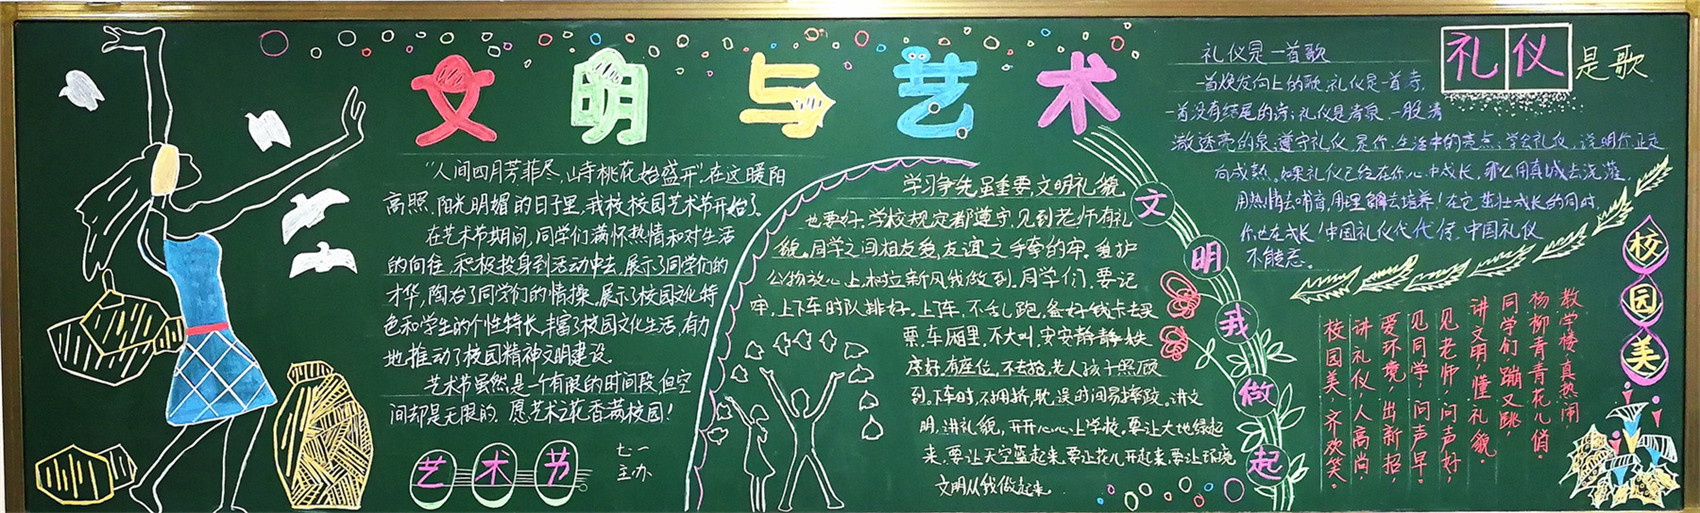 文明与艺术
“人间四月芳菲尽,山寺桃花始盛开。在这暖阳
高照、阳光明媚的日子里,我校校园艺术节开始了。
在艺术节期间,同学们满怀热情和对生活
的向往,积极投身到活动中去,展示了同学们的
才华,陶冶了同学们的情操。展示了校园文化特
色和学生的个性特长,丰富了校园文化生活,有力
地推动了校园精神文明建设。
艺术节虽然是一个有限的时间段,但空
间却是无限的。愿艺术之花香满校园!
艺术节
七一
主办
学习争先虽重要,文明礼貌
也要好。学校规定都遵守,见到老师有礼
貌。同学之间相友爱,友谊之手牵的牢。爱护
公物放心上,树立新风我做到。同学们,要记
牢,上下车时队排好。上车,不乱跑,备好钱卡去买
票,车厢里,不大叫,安安静静
序好。有座位,不去抢,老人孩子照顾
到。下车时,不拥挤,耽误时间易摔跤。讲文
明,讲礼貌,开开心心上学校。要让大地绿起
来,要让天空蓝起来,要让花儿开起来,要让环境
文明从我做起来。
文明我做起
礼仪是歌
礼仪是一首歌
一首焕发向上的歌,礼仪是一首诗,
一首没有结尾的诗;礼仪是清泉,一股清
澈透亮的泉。遵守礼仪,是你生活中的亮点;学会礼仪,说明你正走
向成熟。如果礼仪已经在你心中成长,那么用真诚去浇灌,
用热情去哺育,用理解去培养!在它茁壮成长的同时,
你也在成长!中国礼仪代代传,中国礼仪
不能忘。
校园美
教学楼,真热闹,
杨柳青青花儿俏。
同学们,蹦又跳,
讲文明,懂礼貌。
见老师,问声好,
见同学,问声早。
爱环境,出新招,
讲礼仪,人高尚,
校园美,齐欢笑。